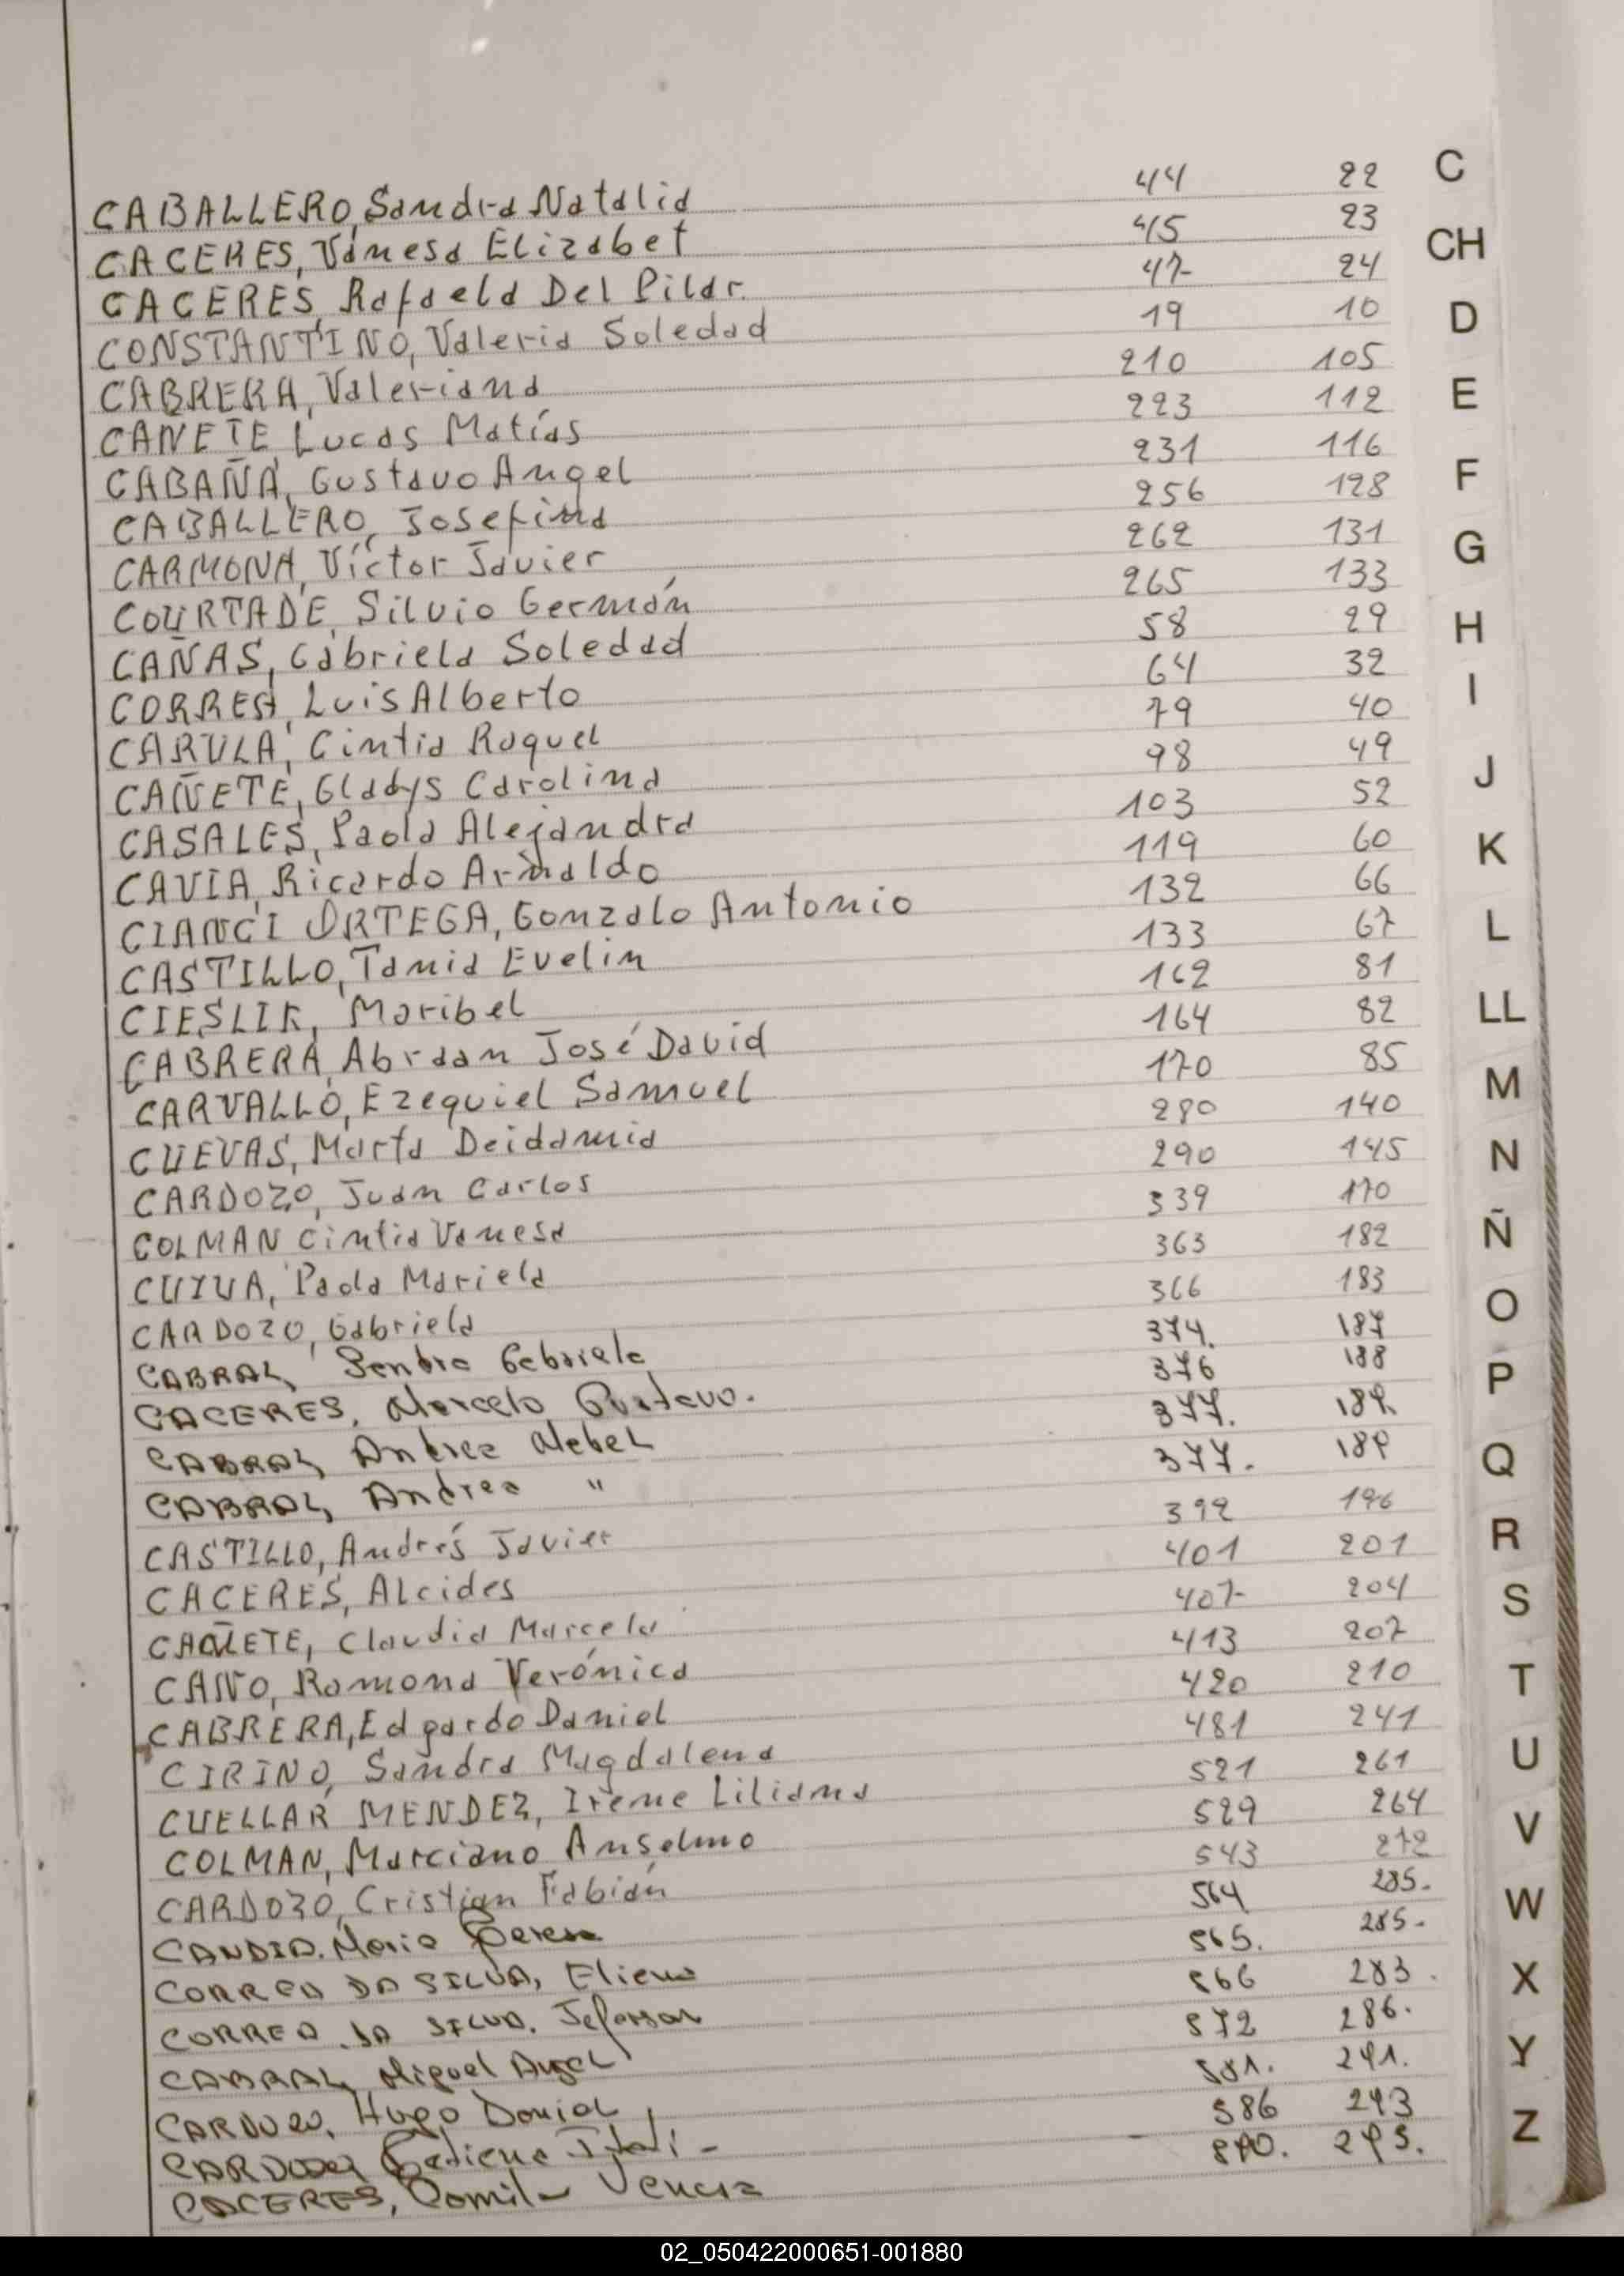 C
CABALLERO, Sandra Natalia 44 22
CACERES, Vanesa Elizabet 45 23
CH
CACERES, Rafaela Del Pilar 47 24
CONSTANTINO, Valeria Soledad 19 10
D
CABRERA, Valeriana 210 105
CAÑETE Lucas Matías 223 112
E
CABAÑA, Gustavo Angel 231 116
CABALLERO, Josefina 256 128
F
CARMONA, Víctor Javier 262 131
COURTADE, Silvio Germán 265 133
G
CAÑAS, Gabriela Soledad 58 29
CORREA, Luis Alberto 64 32
H
CARULA, Cintia Raquel 79 40
I
CAÑETE, Gladys Carolina 98 49
CASALES, Paola Alejandra 103 52
J
CAVIA, Ricardo Arnaldo 119 60
CIANCI ORTEGA, Gonzalo Antonio 132 66
K
CASTILLO, Tania Evelin 133 67
CIESLIK, Maribel 162 81
L
CABRERA, Abraam José David 164 82
CARVALLO, Ezequiel Samuel 170 85
LL
CUEVAS, Marta Deidamia 280 140
M
CARDOZO, Juan Carlos 290 145
COLMAN Cintia Vanesa 339 170
N
CUYUA, Paola Mariela 363 182
CARDOZO, Gabriela 366 183
Ñ
CABRAL, Sandra Gabriela 374. 187
CACERES, Marcelo Gustavo. 376 188
O
CABRAL, Andrea Mabel 377. 189.
P
CABRAL, Andrea " 377. 189
CASTILLO, Andrés Javier 392 196
Q
CACERES, Alcides 401 201
CAÑETE, Claudia Marcela 407 204
R
CANO, Ramona Verónica 413 207
CABRERA, Edgardo Daniel 420 210
S
CIRINO, Sandra Magdalena 481 241
T
CUELLAR MENDEZ, Irene Liliana 521 261
COLMAN, Marciano Anselmo 529 264
U
CARDOZO, Cristian Fabián 543 272
CANDIA. Maria 564 285.
V
CORREA DA SILVA, 565. 285.
W
CORREA DA SILVA. Jeferson 566 283.
CABRAL, Miguel Angel 572 286.
X
CARDOZO, Hugo Daniel 581. 291.
Y
CARDOZO, 586 293
CACERES, Camila 295.
Z
02_050422000651-001880